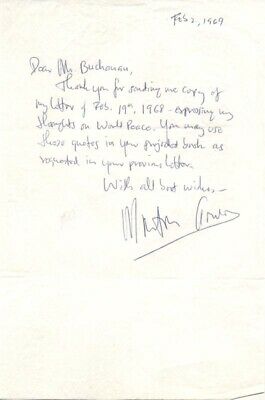 Feb 2, 1969
Dear Mr. Buchanan,
Thank you for sending me copy
of my letter of Feb. 19th, 1968 - expressing my
thoughts on World Peace. You may use
those quotes in your projected book as
requested in your previous letter.
With all best wishes -